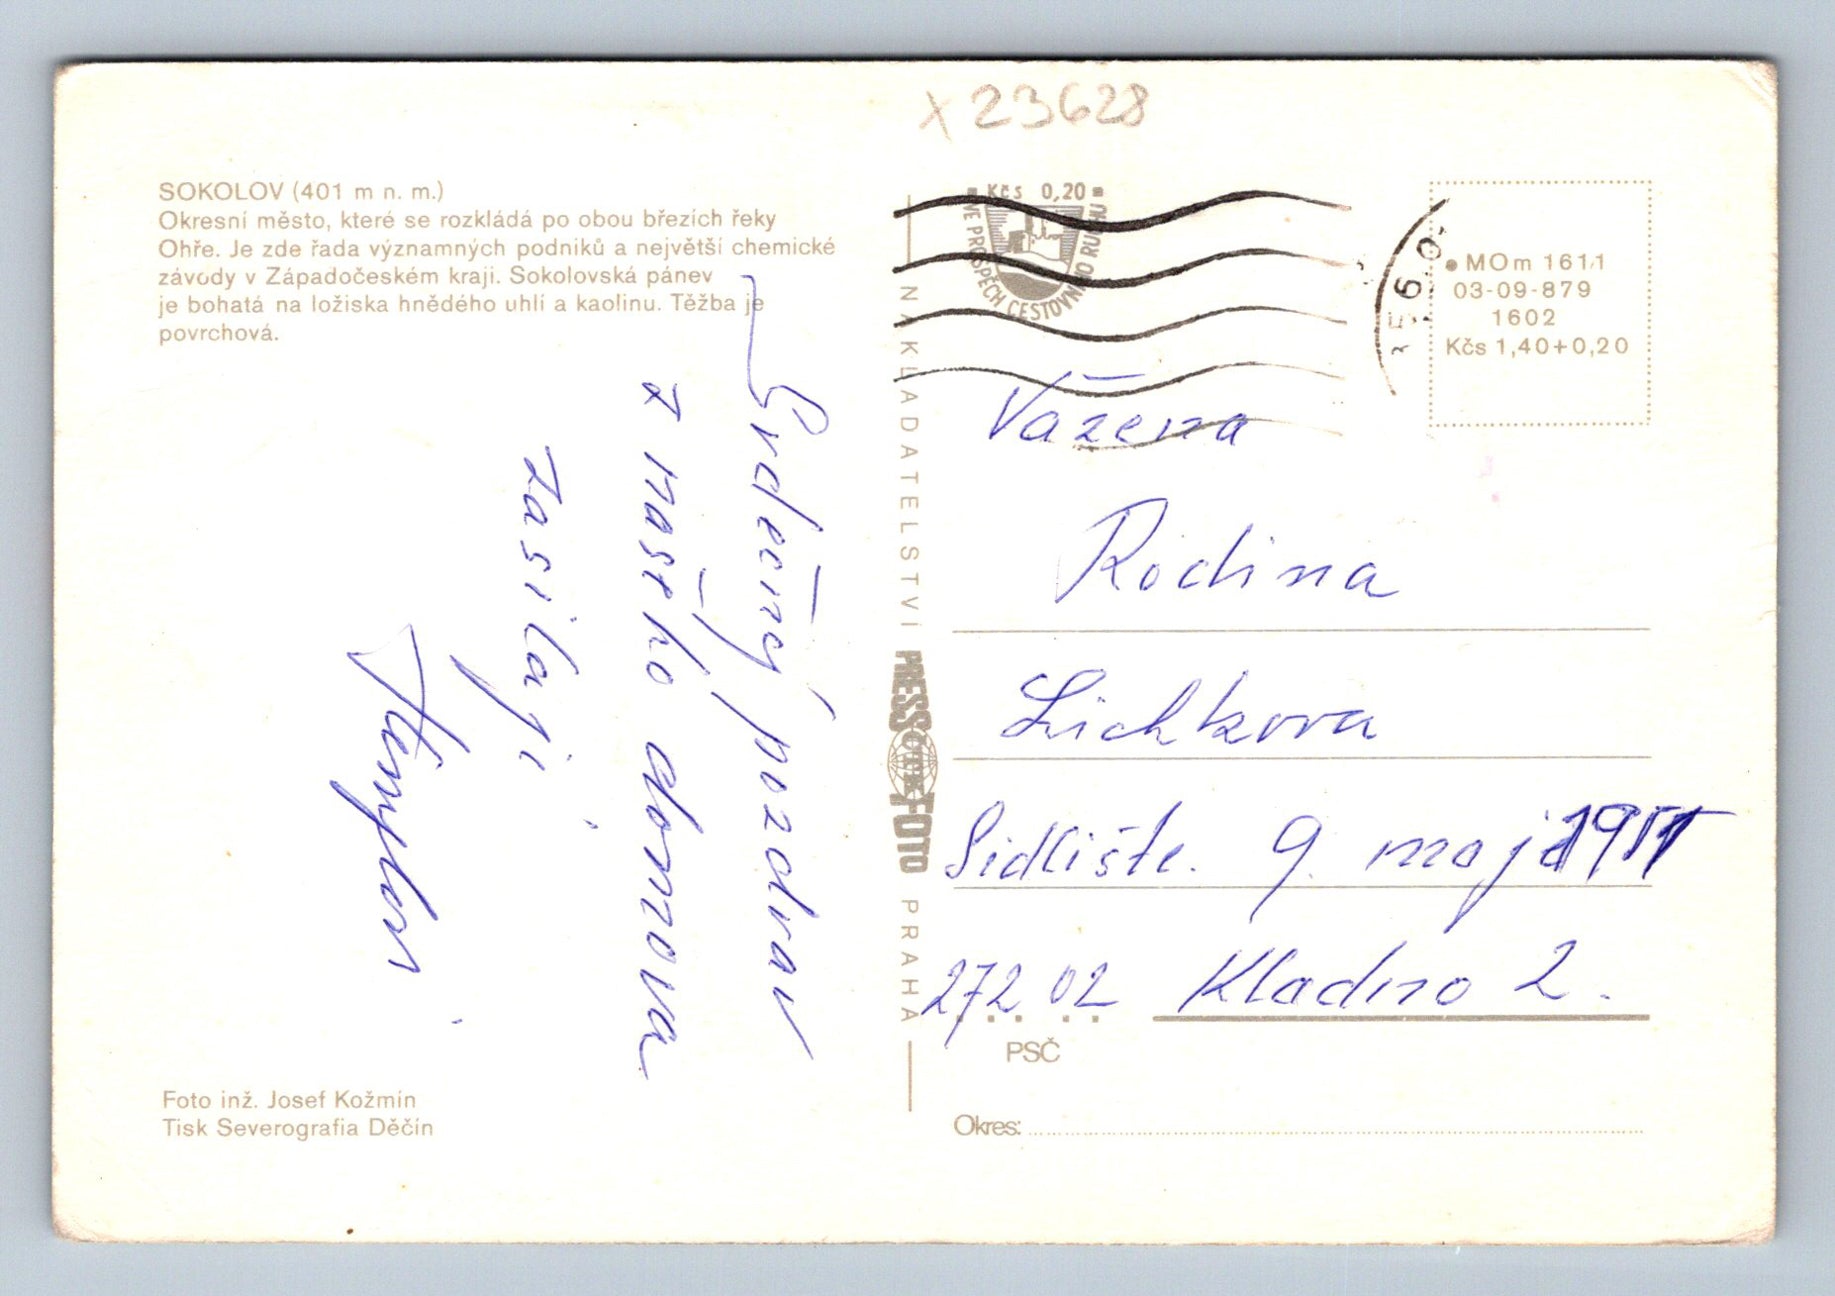 x 23628
SOKOLOV (401 m n. m.)
Okresní město, které se rozkládá po obou březích řeky
Ohře. Je zde řada významných podniků a největší chemické
závody v Západočeském kraji. Sokolovská pánev
je bohatá na ložiska hnědého uhlí a kaolinu. Těžba je
povrchová.
Srdečný pozdrav
z našeho domova
zasílají
Foto inž. Josef Kožmín
Tisk Severografia Děčín
NAKLADATELSTVÍ PRESSFOTO PRAHA
ČTK
Kčs 0,20
VE PROSPĚCH CESTOVNÍHO RUCHU
356 0
MOm 1611
03-09-879
1602
Kčs 1,40+0,20
Vážena
Rodina
Lichkova
Sidliště. 9. maj
272 02 Kladno 2.
PSČ
Okres: